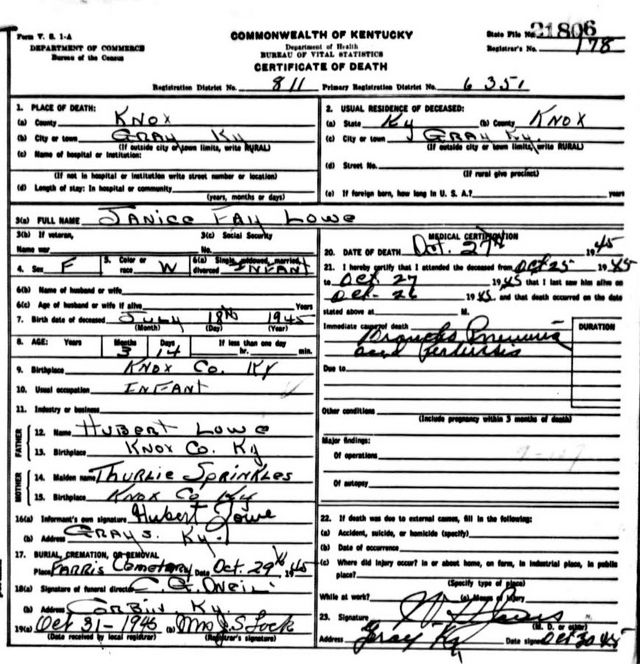 Form V. S. 1-A
DEPARTMENT OF COMMERCE
Bureau of the Census
COMMONWEALTH OF KENTUCKY
Department of Health
BUREAU OF VITAL STATISTICS
CERTIFICATE OF DEATH
State File No. 21806
Registrar's No. 178
Registration District No. 811 Primary Registration District No. 6351
1. PLACE OF DEATH:
(a) County KNOX
(b) City or town GRAY KY
(If outside city or town limits, write RURAL)
(c) Name of hospital or institution:
(If not in hospital or institution write street number or location)
(d) Length of stay: In hospital or community
(years, months or days)
2. USUAL RESIDENCE OF DECEASED:
(a) State KY (b) County KNOX
(c) City or town GRAY KY.
(If outside city or town limits, write RURAL)
(d) Street No.
(If rural give precinct)
(e) If foreign born, how long in U. S. A.? years
3(a) FULL NAME JANICE FAY LOWE
3(b) If veteran,
Name war
3(c) Social Security
No.
4. Sex F 5. Color or race W 6(a) Single, widowed, married, divorced INFANT
6(b) Name of husband or wife
6(c) Age of husband or wife if alive Years
7. Birth date of deceased JULY 18th 1945
(Month) (Day) (Year)
8. AGE: Years Months 3 Days 14 If less than one day hr. min.
9. Birthplace KNOX CO. KY
10. Usual occupation INFANT
11. Industry or business
FATHER
12. Name HUBERT LOWE
13. Birthplace KNOX CO. Ky
MOTHER
14. Maiden name THURLIE SPRINKLES
15. Birthplace KNOX CO KY
16(a) Informant's own signature Hubert Lowe
(b) Address GRAYS KY.
17. BURIAL, CREMATION, OR REMOVAL
Place PARRIS Cemetery Date Oct. 29th 1945
18(a) Signature of funeral director C. G. ONeil
(b) Address CORBIN, KY.
19(a) Oct 31-1945 (b) Mrs J.S. Lock
(Date received by local registrar) (Registrar's signature)
MEDICAL CERTIFICATION
20. DATE OF DEATH Oct. 27th 1945
21. I hereby certify that I attended the deceased from Oct 25 1945
to Oct 27 1945 that I last saw him alive on
Oct-26 1945, and that death occurred on the date
stated above at M.
Immediate cause of death
Broncho Pneumonia
and Pertussis
DURATION
Due to
Other conditions
(Include pregnancy within 3 months of death)
Major findings:
Of operations
Of autopsy
22. If death was due to external causes, fill in the following:
(a) Accident, suicide, or homicide (specify)
(b) Date of occurrence
(c) Where did injury occur? In or about home, on farm, in industrial place, in public
place?
(Specify type of place)
While at work? (e) Means of Injury
23. Signature
(M. D. or other)
Address Gray Ky Date signed Oct 30 45